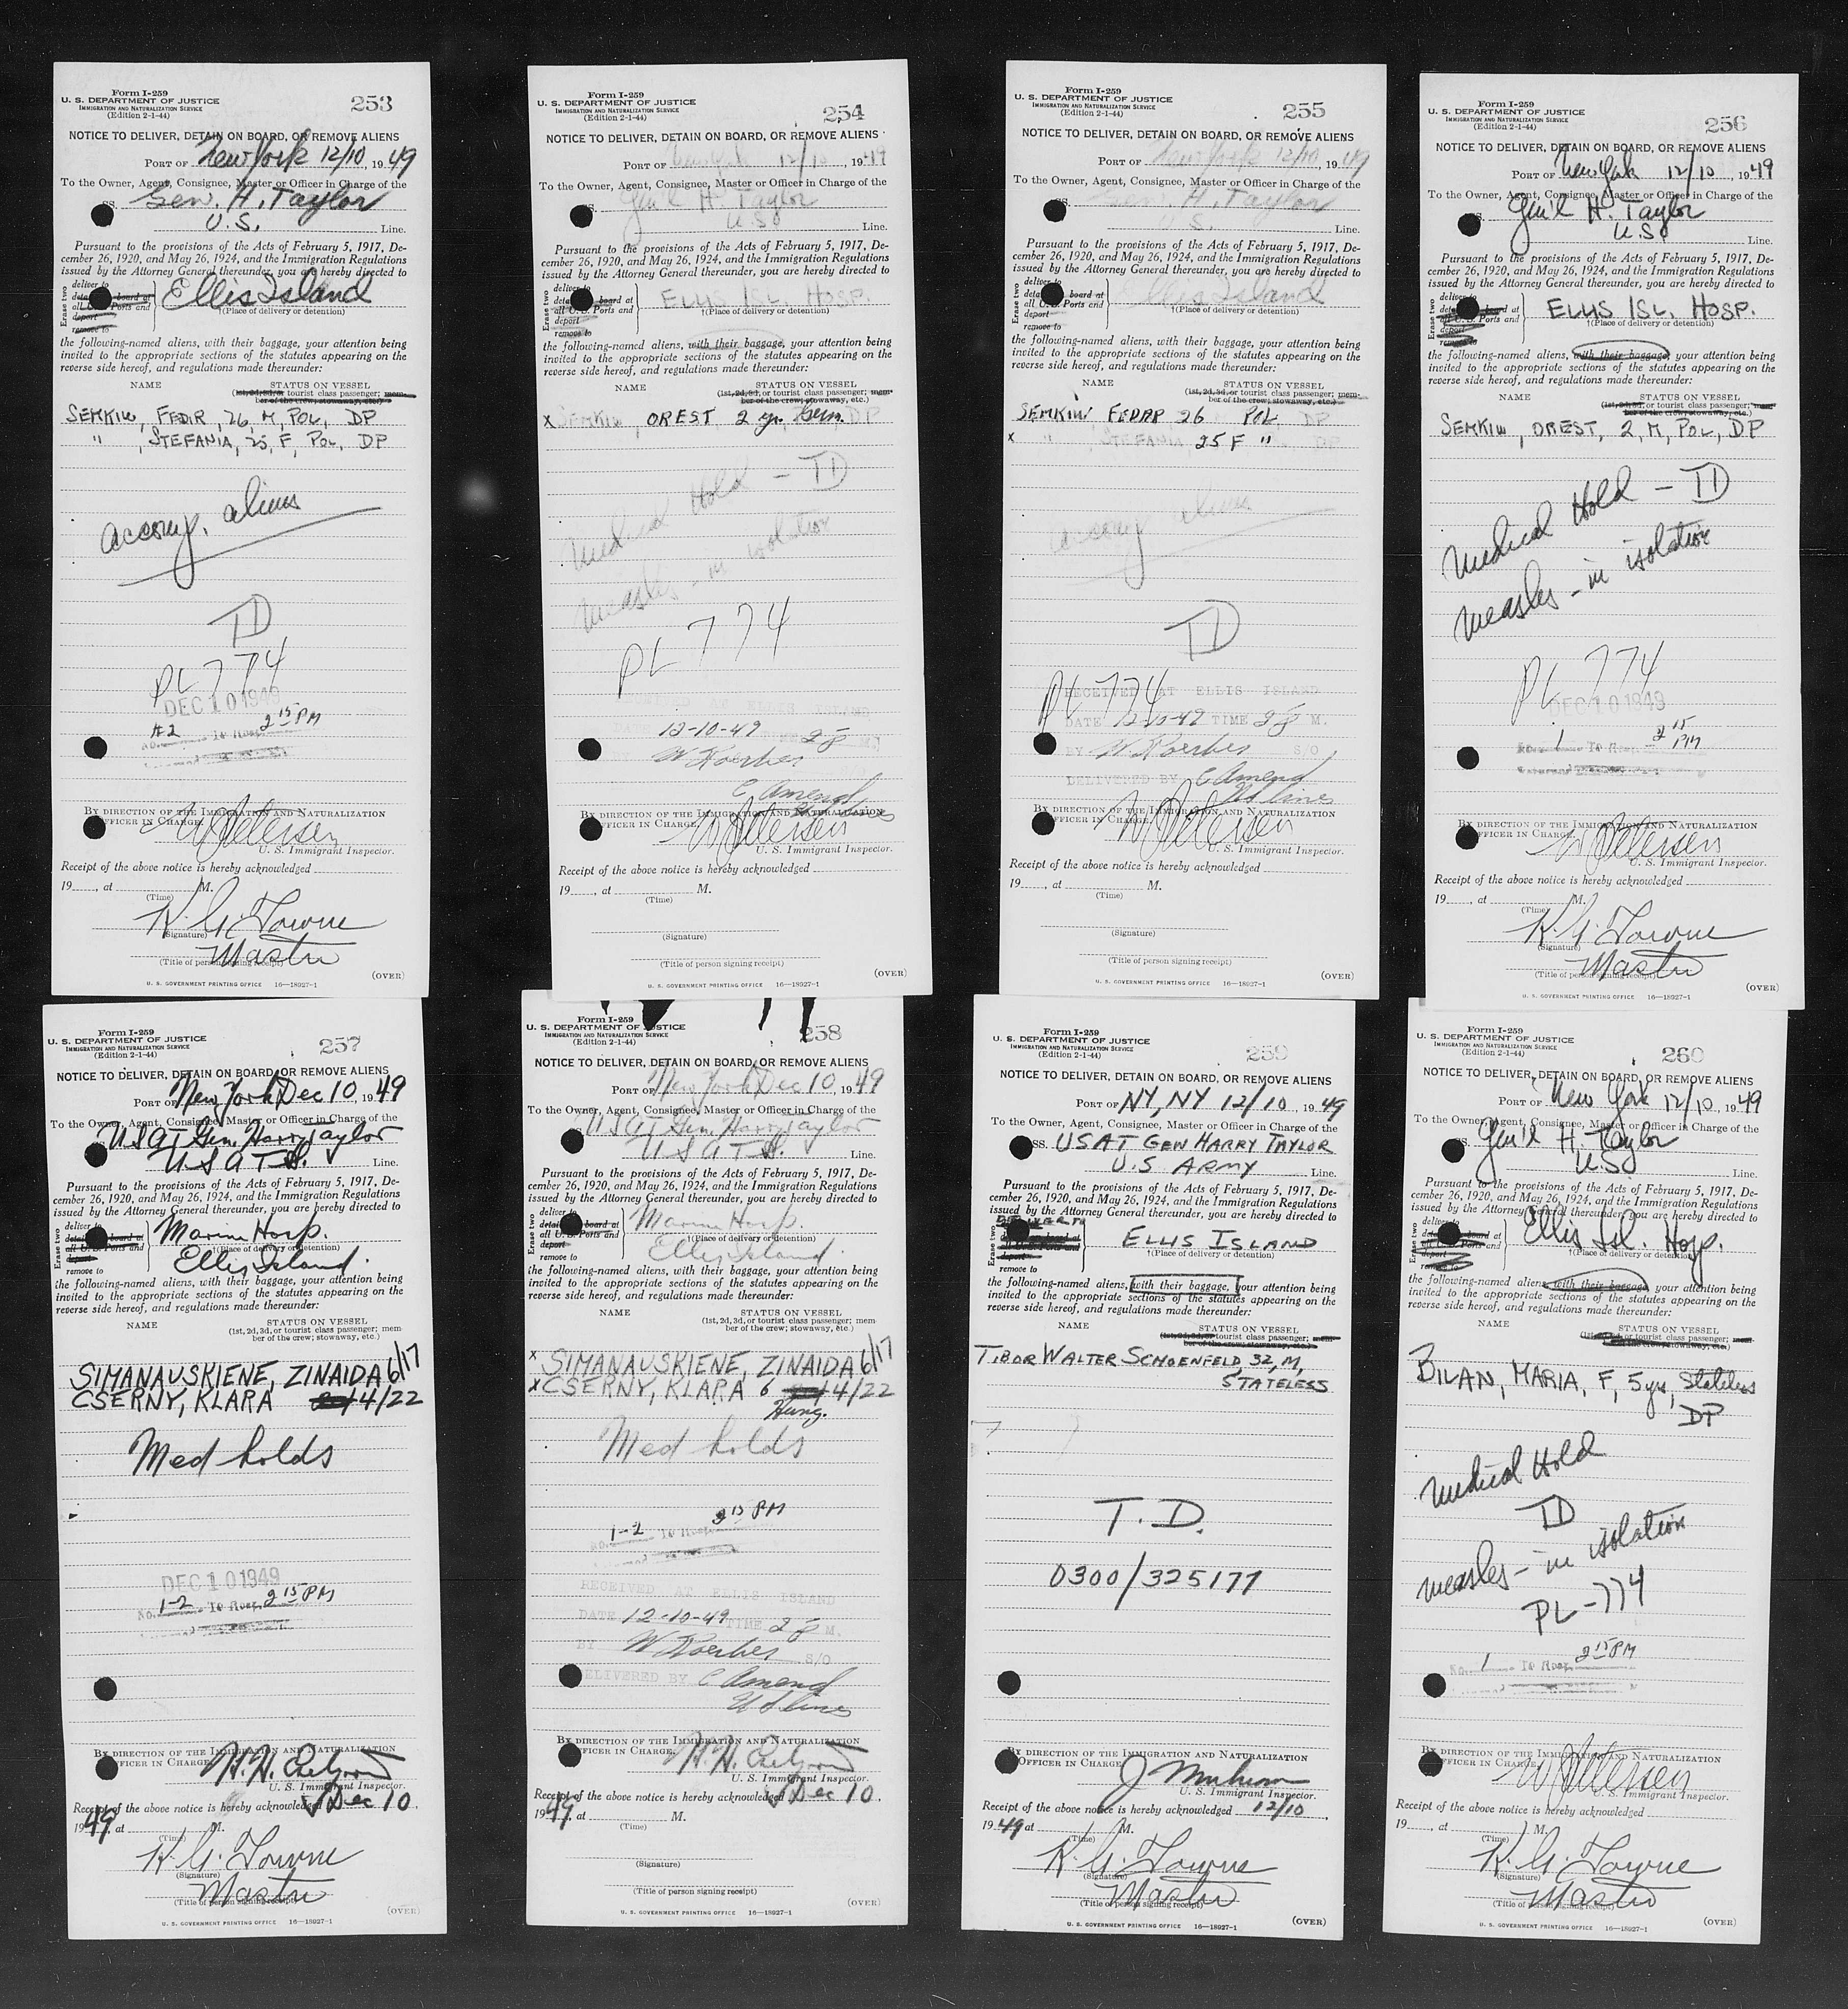 Form I-259
U. S. DEPARTMENT OF JUSTICE
IMMIGRATION AND NATURALIZATION SERVICE
(Edition 2-1-44)
253
NOTICE TO DELIVER, DETAIN ON BOARD, OR REMOVE ALIENS
PORT OF New York 12/10, 1949
To the Owner, Agent, Consignee, Master or Officer in Charge of the
SS. Gen. H. Taylor
U.S. Line.
Pursuant to the provisions of the Acts of February 5, 1917, De-
cember 26, 1920, and May 26, 1924, and the Immigration Regulations
issued by the Attorney General thereunder, you are hereby directed to
Erase two
deliver to
board at
all U.S. Ports and
deport
remove to
Ellis Island
†(Place of delivery or detention)
the following-named aliens, with their baggage, your attention being
invited to the appropriate sections of the statutes appearing on the
reverse side hereof, and regulations made thereunder:
NAME STATUS ON VESSEL
(1st, 2d, 3d, or tourist class passenger; mem-
ber of the crew; stowaway, etc.)
SEMKIW, FEDIR, 26, M, POL, DP
" , STEFANIA, 25, F, POL, DP
accomy. aliens
TD
PL 774
DEC 10 1949
#2 2 15 PM
BY DIRECTION OF THE IMMIGRATION AND NATURALIZATION
OFFICER IN CHARGE.
W Petersen
U. S. Immigrant Inspector.
Receipt of the above notice is hereby acknowledged
19 , at M.
(Time)
K. G. Towne
(Signature)
Master
(Title of person signing receipt)
(OVER)
U. S. GOVERNMENT PRINTING OFFICE 16—18927-1
Form I-259
U. S. DEPARTMENT OF JUSTICE
IMMIGRATION AND NATURALIZATION SERVICE
(Edition 2-1-44)
254
NOTICE TO DELIVER, DETAIN ON BOARD, OR REMOVE ALIENS
PORT OF New York 12/10, 1949
To the Owner, Agent, Consignee, Master or Officer in Charge of the
SS. Gen'l H. Taylor
U.S. Line.
Pursuant to the provisions of the Acts of February 5, 1917, De-
cember 26, 1920, and May 26, 1924, and the Immigration Regulations
issued by the Attorney General thereunder, you are hereby directed to
Erase two
deliver to
board at
all U.S. Ports and
deport
remove to
ELLIS ISL. HOSP.
†(Place of delivery or detention)
the following-named aliens, with their baggage, your attention being
invited to the appropriate sections of the statutes appearing on the
reverse side hereof, and regulations made thereunder:
NAME STATUS ON VESSEL
(1st, 2d, 3d, or tourist class passenger; mem-
ber of the crew; stowaway, etc.)
x SEMKIW, OREST 2 yr. Germ. DP
Medical Hold - TD
measles - in isolation
PL 774
RECEIVED AT ELLIS ISLAND
12-10-49
W. Koerber
C Amend
BY DIRECTION OF THE IMMIGRATION AND NATURALIZATION
OFFICER IN CHARGE.
W Petersen
U. S. Immigrant Inspector.
Receipt of the above notice is hereby acknowledged
19 , at M.
(Time)
(Signature)
(Title of person signing receipt)
(OVER)
U. S. GOVERNMENT PRINTING OFFICE 16—18927-1
Form I-259
U. S. DEPARTMENT OF JUSTICE
IMMIGRATION AND NATURALIZATION SERVICE
(Edition 2-1-44)
255
NOTICE TO DELIVER, DETAIN ON BOARD, OR REMOVE ALIENS
PORT OF New York 12/10, 1949
To the Owner, Agent, Consignee, Master or Officer in Charge of the
Gen. H. Taylor
U.S. Line.
Pursuant to the provisions of the Acts of February 5, 1917, De-
cember 26, 1920, and May 26, 1924, and the Immigration Regulations
issued by the Attorney General thereunder, you are hereby directed to
Erase two
deliver to
board at
all U.S. Ports and
deport
remove to
Ellis Island
†(Place of delivery or detention)
the following-named aliens, with their baggage, your attention being
invited to the appropriate sections of the statutes appearing on the
reverse side hereof, and regulations made thereunder:
NAME STATUS ON VESSEL
(1st, 2d, 3d, or tourist class passenger; mem-
ber of the crew; stowaway, etc.)
SEMKIW FEDAR 26 POL, DP
x " STEFANIA, 25 F " DP
accomy aliens
TD
PL 774
RECEIVED AT ELLIS ISLAND
DATE 12-10-49 TIME M.
BY W. Koerber S/O
DELIVERED BY C Amend
US Lines
BY DIRECTION OF THE IMMIGRATION AND NATURALIZATION
OFFICER IN CHARGE.
W Petersen
U. S. Immigrant Inspector.
Receipt of the above notice is hereby acknowledged
19 , at M.
(Time)
(Signature)
(Title of person signing receipt)
(OVER)
U. S. GOVERNMENT PRINTING OFFICE 16—18927-1
Form I-259
U. S. DEPARTMENT OF JUSTICE
IMMIGRATION AND NATURALIZATION SERVICE
(Edition 2-1-44)
256
NOTICE TO DELIVER, DETAIN ON BOARD, OR REMOVE ALIENS
PORT OF New York 12/10, 1949
To the Owner, Agent, Consignee, Master or Officer in Charge of the
SS. Gen'l H. Taylor
U.S. Line.
Pursuant to the provisions of the Acts of February 5, 1917, De-
cember 26, 1920, and May 26, 1924, and the Immigration Regulations
issued by the Attorney General thereunder, you are hereby directed to
Erase two
deliver to
board at
all U.S. Ports and
ELLIS ISL. HOSP.
†(Place of delivery or detention)
the following-named aliens, with their baggage, your attention being
invited to the appropriate sections of the statutes appearing on the
reverse side hereof, and regulations made thereunder:
NAME STATUS ON VESSEL
(1st, 2d, 3d, or tourist class passenger; mem-
ber of the crew; stowaway, etc.)
SEMKIW, OREST, 2, M, POL, DP
Medical Hold - TD
measles - in isolation
PL 774
DEC 10 1949
No. 1 2 15 PM
BY DIRECTION OF THE IMMIGRATION AND NATURALIZATION
OFFICER IN CHARGE.
W Petersen
U. S. Immigrant Inspector.
Receipt of the above notice is hereby acknowledged
19 , at M.
(Time)
K. G. Towne
(Signature)
Master
(Title of person signing receipt)
(OVER)
U. S. GOVERNMENT PRINTING OFFICE 16—18927-1
Form I-259
U. S. DEPARTMENT OF JUSTICE
IMMIGRATION AND NATURALIZATION SERVICE
(Edition 2-1-44)
257
NOTICE TO DELIVER, DETAIN ON BOARD, OR REMOVE ALIENS
PORT OF New York Dec 10, 1949
To the Owner, Agent, Consignee, Master or Officer in Charge of the
USAT Gen. Harry Taylor
U S A T S. Line.
Pursuant to the provisions of the Acts of February 5, 1917, De-
cember 26, 1920, and May 26, 1924, and the Immigration Regulations
issued by the Attorney General thereunder, you are hereby directed to
Erase two
deliver to
board at
all U.S. Ports and
deport
remove to
Marine Hosp.
†(Place of delivery or detention)
Ellis Island.
the following-named aliens, with their baggage, your attention being
invited to the appropriate sections of the statutes appearing on the
reverse side hereof, and regulations made thereunder:
NAME STATUS ON VESSEL
(1st, 2d, 3d, or tourist class passenger; mem-
ber of the crew; stowaway, etc.)
SIMANAUSKIENE, ZINAIDA 6/17
CSERNY, KLARA 4/22
Med holds
DEC 10 1949
No. 1-2 2 15 PM
BY DIRECTION OF THE IMMIGRATION AND NATURALIZATION
OFFICER IN CHARGE.
U. S. Immigrant Inspector.
Receipt of the above notice is hereby acknowledged Dec 10,
1949, at M.
(Time)
K. G. Towne
(Signature)
Master
(Title of person signing receipt)
(OVER)
U. S. GOVERNMENT PRINTING OFFICE 16—18927-1
Form I-259
U. S. DEPARTMENT OF JUSTICE
IMMIGRATION AND NATURALIZATION SERVICE
(Edition 2-1-44)
258
NOTICE TO DELIVER, DETAIN ON BOARD, OR REMOVE ALIENS
PORT OF New York Dec 10, 1949
To the Owner, Agent, Consignee, Master or Officer in Charge of the
USAT Gen. Harry Taylor
U S A T S. Line.
Pursuant to the provisions of the Acts of February 5, 1917, De-
cember 26, 1920, and May 26, 1924, and the Immigration Regulations
issued by the Attorney General thereunder, you are hereby directed to
Erase two
deliver to
board at
all U.S. Ports and
deport
remove to
Marine Hosp.
†(Place of delivery or detention)
Ellis Island.
the following-named aliens, with their baggage, your attention being
invited to the appropriate sections of the statutes appearing on the
reverse side hereof, and regulations made thereunder:
NAME STATUS ON VESSEL
(1st, 2d, 3d, or tourist class passenger; mem-
ber of the crew; stowaway, etc.)
x SIMANAUSKIENE, ZINAIDA 6/17
x CSERNY, KLARA 6 4/22
Hung.
Med holds
2 15 PM
1-2
RECEIVED AT ELLIS ISLAND
DATE 12-10-49 TIME M.
BY W. Koerber S/O
DELIVERED BY C Amend
US Lines
BY DIRECTION OF THE IMMIGRATION AND NATURALIZATION
OFFICER IN CHARGE.
U. S. Immigrant Inspector.
Receipt of the above notice is hereby acknowledged Dec 10.
1949, at M.
(Time)
(Signature)
(Title of person signing receipt)
(OVER)
U. S. GOVERNMENT PRINTING OFFICE 16—18927-1
Form I-259
U. S. DEPARTMENT OF JUSTICE
IMMIGRATION AND NATURALIZATION SERVICE
(Edition 2-1-44)
259
NOTICE TO DELIVER, DETAIN ON BOARD, OR REMOVE ALIENS
PORT OF NY, NY 12/10, 1949
To the Owner, Agent, Consignee, Master or Officer in Charge of the
SS. USAT GEN HARRY TAYLOR
U.S ARMY Line.
Pursuant to the provisions of the Acts of February 5, 1917, De-
cember 26, 1920, and May 26, 1924, and the Immigration Regulations
issued by the Attorney General thereunder, you are hereby directed to
DELIVER TO
Erase two
deport
remove to
ELLIS ISLAND
†(Place of delivery or detention)
the following-named aliens, with their baggage, your attention being
invited to the appropriate sections of the statutes appearing on the
reverse side hereof, and regulations made thereunder:
NAME STATUS ON VESSEL
(1st, 2d, 3d, or tourist class passenger; mem-
ber of the crew; stowaway, etc.)
TIBOR WALTER SCHOENFELD, 32, M,
STATELESS
T. D.
0300/325177
BY DIRECTION OF THE IMMIGRATION AND NATURALIZATION
OFFICER IN CHARGE.
U. S. Immigrant Inspector.
Receipt of the above notice is hereby acknowledged 12/10,
1949 at M.
(Time)
K. G. Towne
(Signature)
Master
(Title of person signing receipt)
(OVER)
U. S. GOVERNMENT PRINTING OFFICE 16—18927-1
Form I-259
U. S. DEPARTMENT OF JUSTICE
IMMIGRATION AND NATURALIZATION SERVICE
(Edition 2-1-44)
260
NOTICE TO DELIVER, DETAIN ON BOARD, OR REMOVE ALIENS
PORT OF New York 12/10, 1949
To the Owner, Agent, Consignee, Master or Officer in Charge of the
SS. Gen'l H. Taylor
U.S. Line.
Pursuant to the provisions of the Acts of February 5, 1917, De-
cember 26, 1920, and May 26, 1924, and the Immigration Regulations
issued by the Attorney General thereunder, you are hereby directed to
Erase two
deliver to
Ports and
Ellis Isl. Hosp.
†(Place of delivery or detention)
the following-named aliens, with their baggage, your attention being
invited to the appropriate sections of the statutes appearing on the
reverse side hereof, and regulations made thereunder:
NAME STATUS ON VESSEL
(1st, 2d, 3d, or tourist class passenger; mem-
ber of the crew; stowaway, etc.)
BILAN, MARIA, F, 5 yrs, Stateless
DP
Medical Hold
TD
measles - in isolation
PL-774
2 15 PM
No. 1
BY DIRECTION OF THE IMMIGRATION AND NATURALIZATION
OFFICER IN CHARGE.
W Petersen
U. S. Immigrant Inspector.
Receipt of the above notice is hereby acknowledged
19 , at M.
(Time)
K. G. Towne
(Signature)
Master
(Title of person signing receipt)
(OVER)
U. S. GOVERNMENT PRINTING OFFICE 16—18927-1